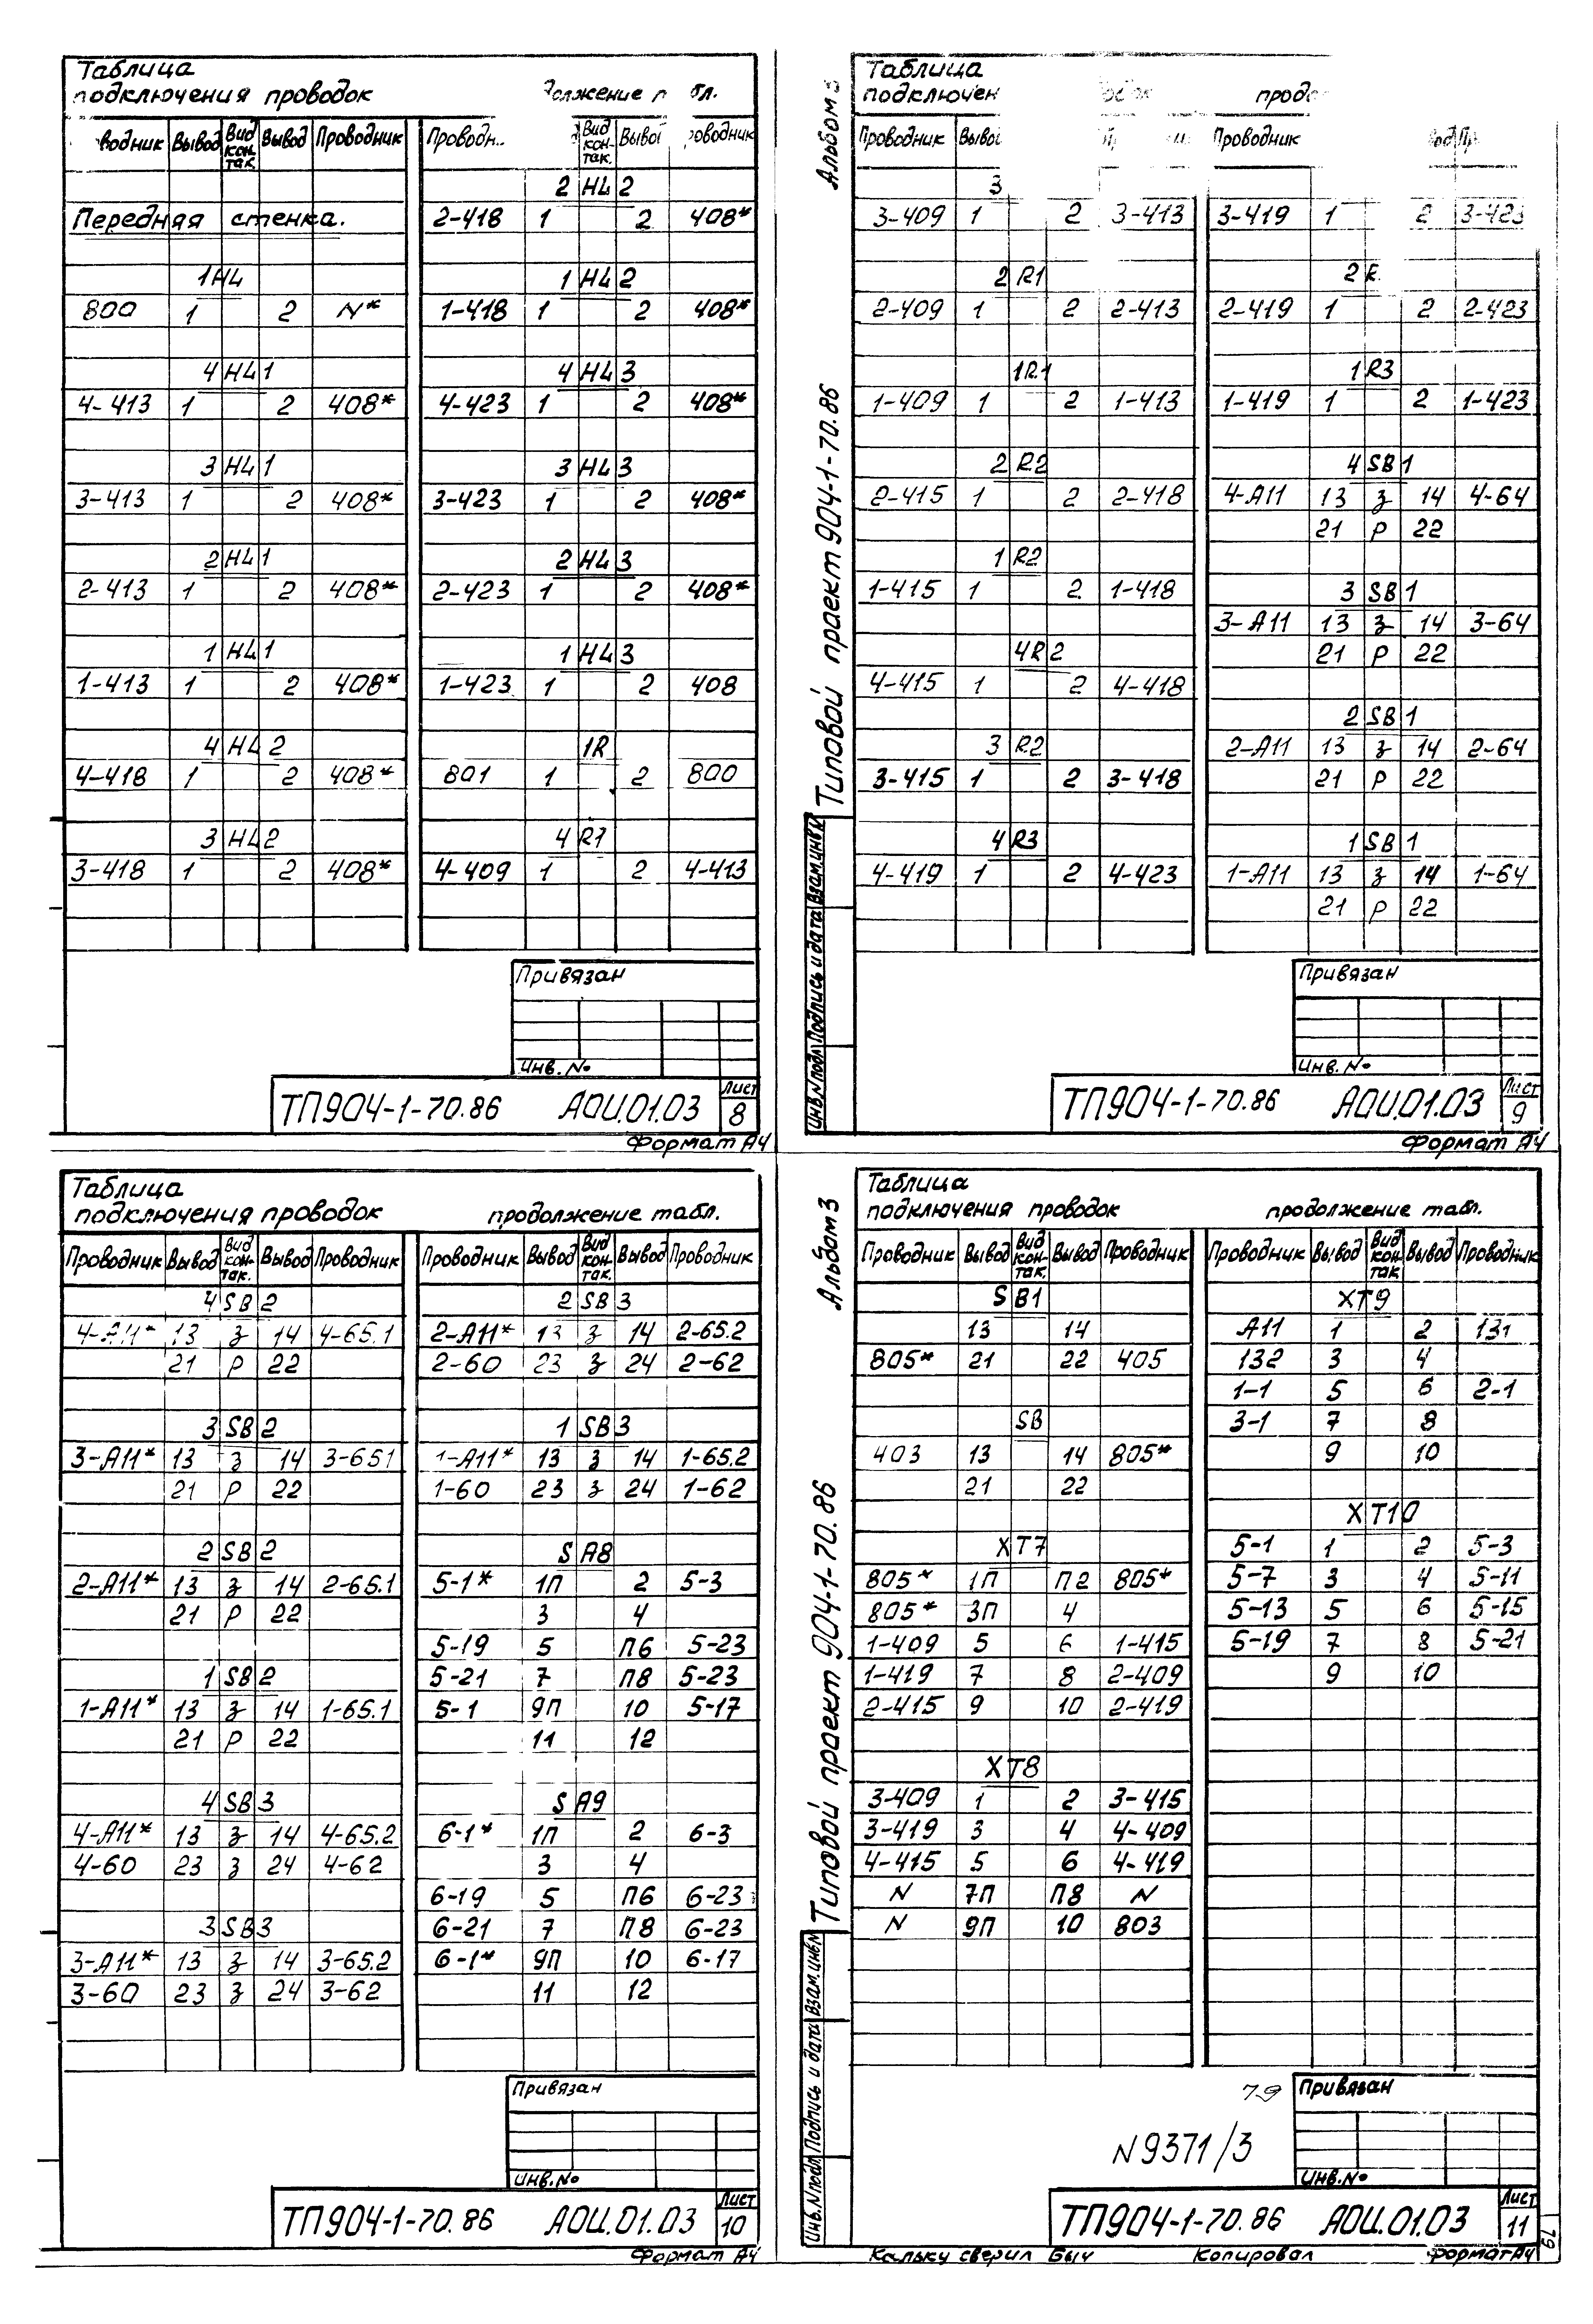 Таблица
подключения проводок должение табл.
водник Вывод Вид кон- так. Вывод Проводник
Передняя стенка.
1HL
800 1 2 N*
4HL1
4-413 1 2 408*
3HL1
3-413 1 2 408*
2HL1
2-413 1 2 408*
1HL1
1-413 1 2 408*
4HL2
4-418 1 2 408*
3HL2
3-418 1 2 408*
Вид кон- так. Вывод роводник
2HL2
2-418 1 2 408*
1HL2
1-418 1 2 408*
4HL3
4-423 1 2 408*
3HL3
3-423 1 2 408*
2HL3
2-423 1 2 408*
1HL3
1-423 1 2 408
1R
801 1 2 800
4R1
4-409 1 2 4-413
Привязан
Инв.№
ТП904-1-70.86 АОИ.01.03 Лист 8
Формат А4
Альбом 3
Типовой проект 904-1-70.86
Инв.N подл Подпись и дата Взам.инв N
Таблица
подключен
Проводник
3
3-409 1 2 3-413
2R1
2-409 1 2 2-413
1R1
1-409 1 2 1-413
2R2
2-415 1 2 2-418
1R2
1-415 1 2 1-418
4R2
4-415 1 2 4-418
3R2
3-415 1 2 3-418
4R3
4-419 1 2 4-423
Проводник
3-419 1 2 3-423
2R
2-419 1 2 2-423
1R3
1-419 1 2 1-423
4SB1
4-А11 13 з 14 4-64
21 р 22
3SB1
3-А11 13 з 14 3-64
21 р 22
2SB1
2-А11 13 з 14 2-64
21 р 22
1SB1
1-А11 13 з 14 1-64
21 р 22
Привязан
Инв.№
ТП904-1-70.86 АОИ.01.03 Лист 9
Формат А4
Таблица
подключения проводок продолжение табл.
Проводник Вывод Вид кон- так. Вывод Проводник
4SB2
4-А11* 13 з 14 4-65.1
21 р 22
3SB2
3-А11* 13 з 14 3-651
21 р 22
2SB2
2-А11* 13 з 14 2-65.1
21 р 22
1SB2
1-А11* 13 з 14 1-65.1
21 р 22
4SB3
4-А11* 13 з 14 4-65.2
4-60 23 з 24 4-62
3SB3
3-А11* 13 з 14 3-65.2
3-60 23 з 24 3-62
Проводник Вывод Вид кон- так. Вывод Проводник
2SB3
2-А11* 13 з 14 2-65.2
2-60 23 з 24 2-62
1SB3
1-А11* 13 з 14 1-65.2
1-60 23 з 24 1-62
SA8
5-1* 1П 2 5-3
3 4
5-19 5 П6 5-23
5-21 7 П8 5-23
5-1 9П 10 5-17
11 12
SA9
6-1* 1П 2 6-3
3 4
6-19 5 П6 6-23
6-21 7 П8 6-23
6-1* 9П 10 6-17
11 12
Привязан
Инв.№
ТП904-1-70.86 АОИ.01.03 Лист 10
Формат А4
Альбом 3
Типовой проект 904-1-70.86
Инв.N подл. Подпись и дата Взам.инв N
Таблица
подключения проводок продолжение табл.
Проводник Вывод Вид кон- так. Вывод Проводник
SB1
13 14
805* 21 22 405
SB
403 13 14 805*
21 22
XT7
805* 1П П2 805*
805* 3П 4
1-409 5 6 1-415
1-419 7 8 2-409
2-415 9 10 2-419
XT8
3-409 1 2 3-415
3-419 3 4 4-409
4-415 5 6 4-419
N 7П П8 N
N 9П 10 803
Проводник Вывод Вид кон- так Вывод Проводник
XT9
А11 1 2 131
132 3 4
1-1 5 6 2-1
3-1 7 8
9 10
XT10
5-1 1 2 5-3
5-7 3 4 5-11
5-13 5 6 5-15
5-19 7 8 5-21
9 10
79
N9371/3
Привязан
Инв.№
ТП904-1-70.86 АОИ.01.03 Лист 11
79
Кальку сверил Быч Копировал Формат А4